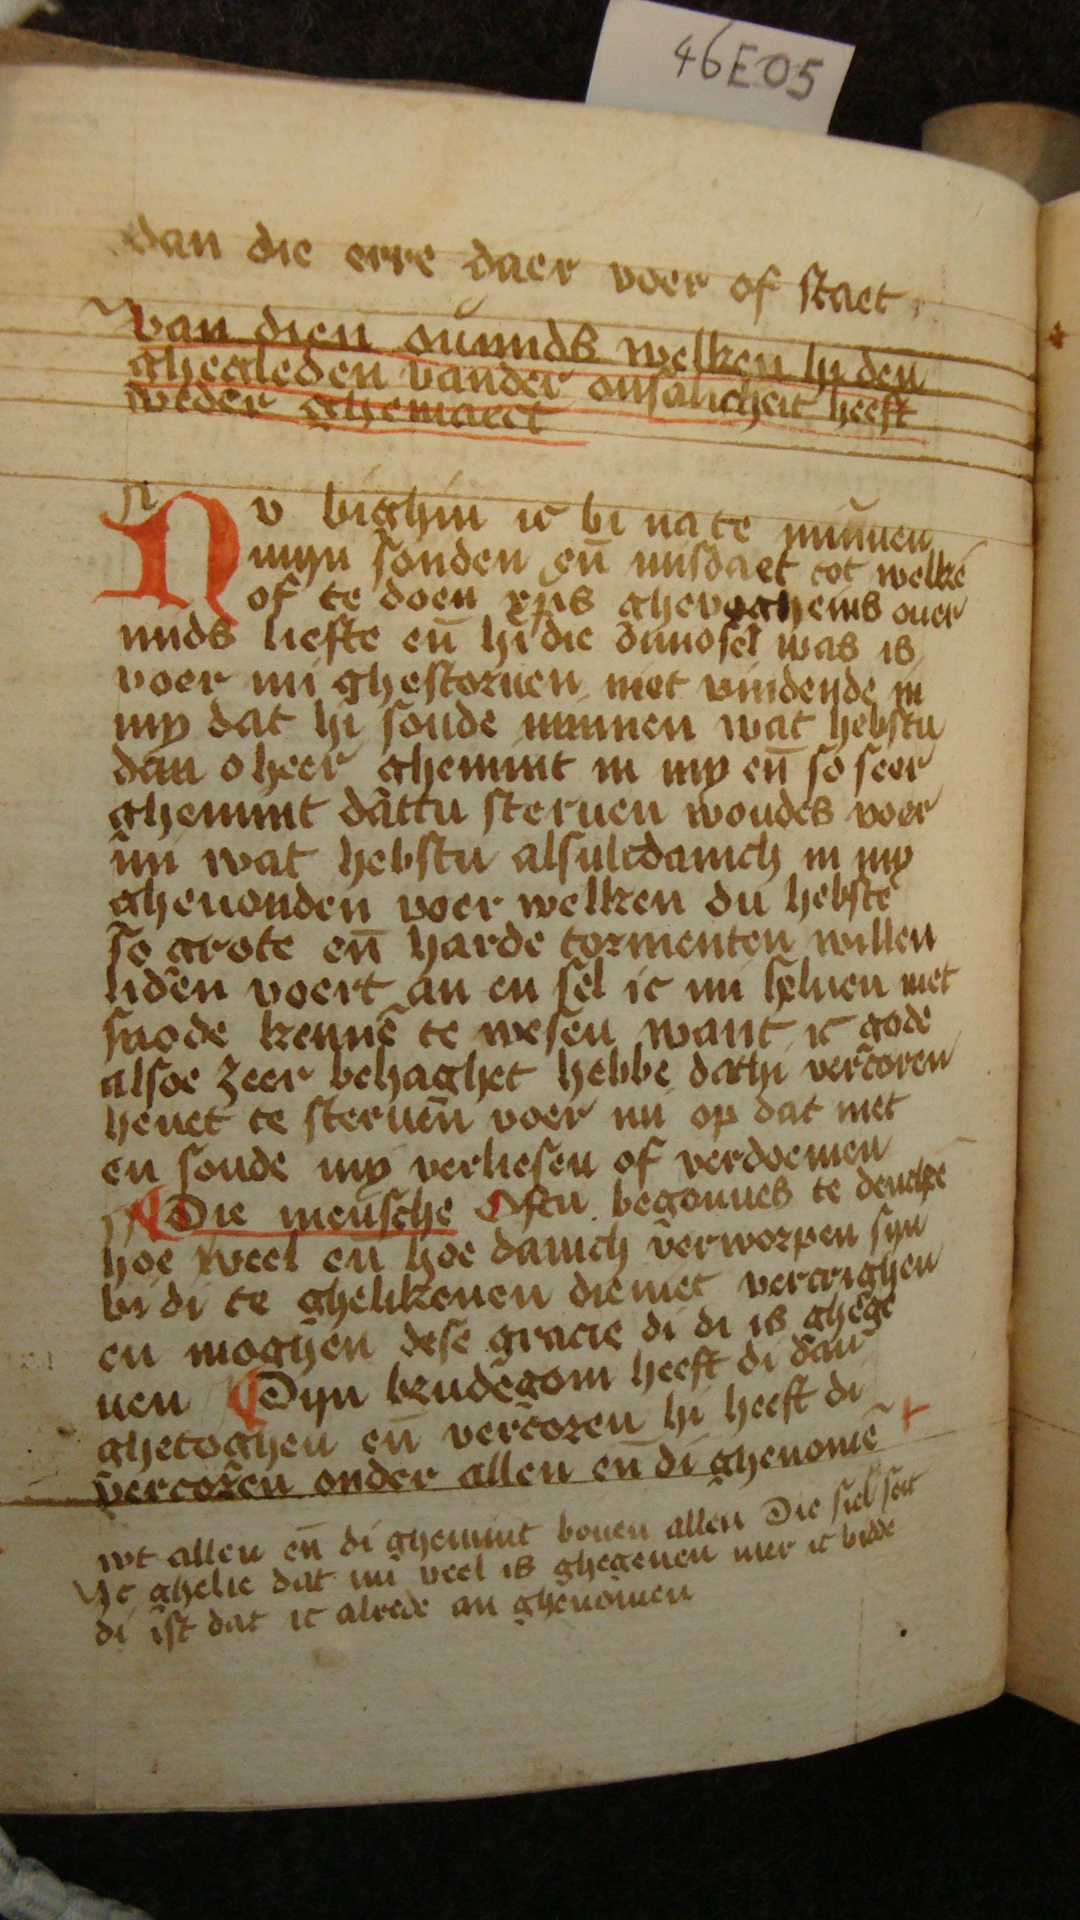 46E05
dan die erre daer voer of staet
Van dien ouunds welken hi den
ghegleden vander onsalicheit heeft
weder ghemaect
Nv bighin ic bi na te minnen
myn sonden en̄ misdaet tot welke
of te doen xp̄s ghevoghenis ouer
mids liefte en̄ hi die dinosel was is
voer mi ghestoruen niet vindende in
my dat hi soude minnen wat hebstu
dan o heer ghemint in my en̄ so seer
ghemint dattu steruen woudes voer
mi wat hebstu alsulcdanich in my
gheuonden voer welken du hebste
so grote en̄ harde tormenten willen
liden voert an en sel ic mi seluen niet
snode kennē te wesen want ic gode
alsoe zeer behaghet hebbe dathi vercoren
heuet te steruen voer mi op dat niet
en soude my verliesen of verdoemen
Die mensche Ofstu begonnes te dencke
hoe weel en̄ hoe danich verworpen syn
bi di te ghelikenen die niet vercrighen
en moghen dese gracie di di is ghege
uen Dyn brudegom heeft di dan
ghetoghen en̄ vercoren hi heeft di
vercoren onder allen en̄ di ghenomē
wt allen en̄ di ghemint bouen allen Die siel seit
Ic ghelie dat mi veel is ghegeuen mer ic bidde
di ist dat ic alrede an ghenomen